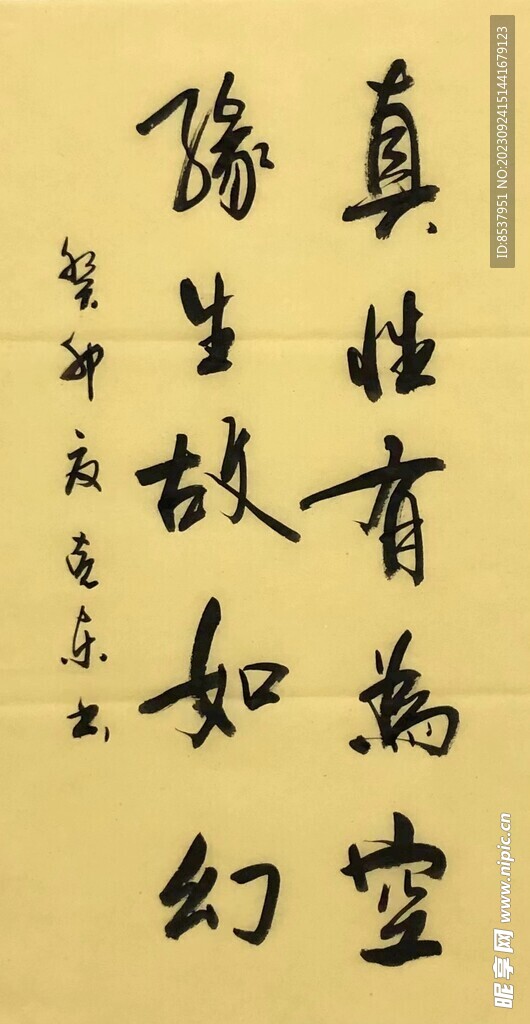 真性有為空
緣生故如幻
癸卯夏克東书
ID:8537951 NO:20230924151441679123
昵享网 www.nipic.cn